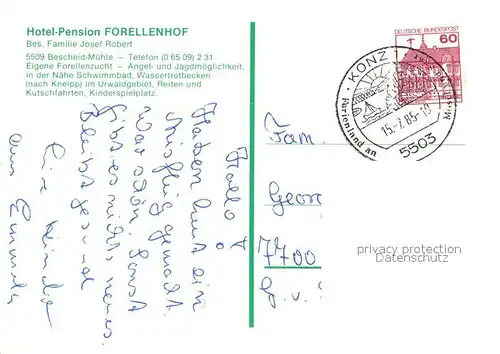 Hotel-Pension FORELLENHOF
Bes. Familie Josef Robert
5509 Bescheid-Mühle – Telefon (0 65 09) 2 31
Eigene Forellenzucht – Angel- und Jagdmöglichkeit,
in der Nähe Schwimmbad, Wassertretbecken
(nach Kneipp) im Urwaldgebiet, Reiten und
Kutschfahrten, Kinderspielplatz.
Hallo
Haben heut ein
Ausflug gemacht.
War schön. Sonst
Gibt es nichts neues.
Bleibt gesund
DEUTSCHE BUNDESPOST
60
KONZ
Ferienland an
15.-7.85-19
5503
Fam.
Geor
7700
privacy protection
Datenschutz